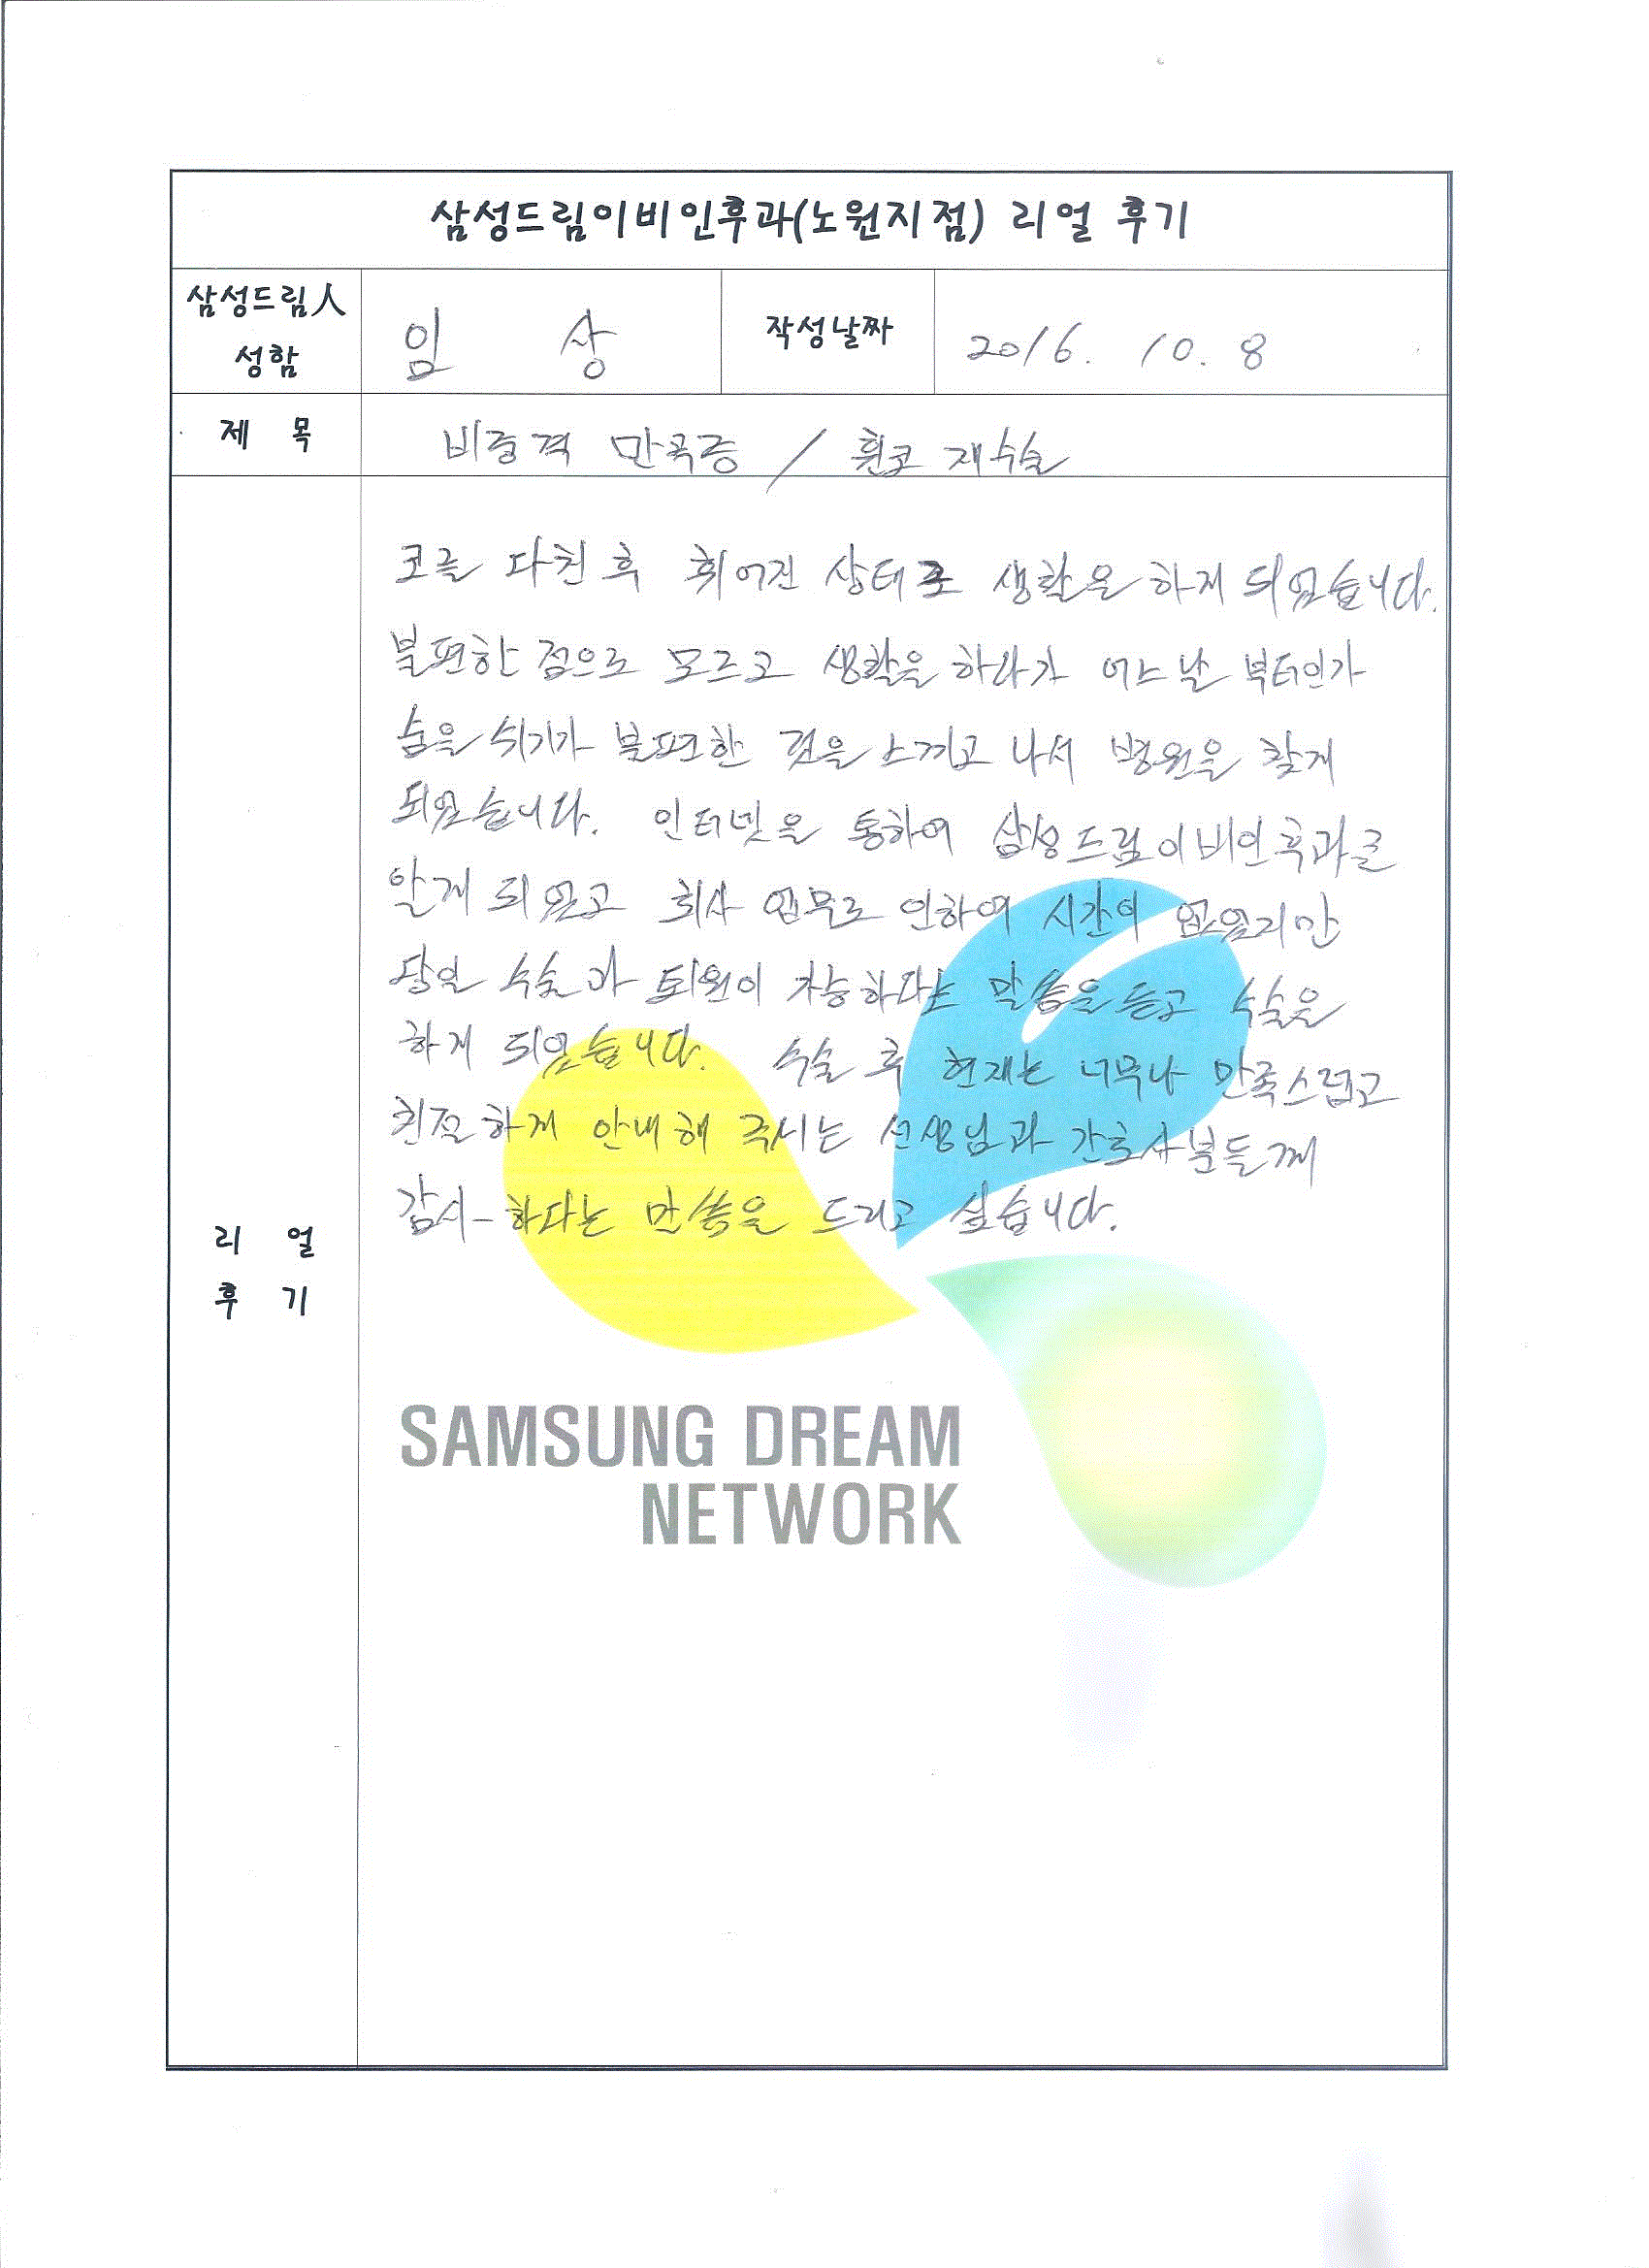 삼성드림이비인후과(노원지점) 리얼 후기
삼성드림人 성함
임 상
작성날짜
2016. 10. 8
제 목
비중격 만곡증 / 휜코 재수술
코를 다친 후 휘어진 상태로 생활은 하게 되었습니다.
불편한 점으로 모르고 생활을 하다가 어느날 부터인가
숨을 쉬기가 불편한 것을 느끼고 나서 병원을 찾게
되었습니다. 인터넷을 통하여 삼성드림이비인후과를
알게 되었고 회사 업무로 인하여 시간이 없었지만
당일 수술과 퇴원이 가능하다는 말씀을 듣고 수술은
하게 되었습니다. 수술 후 현재는 너무나 만족스럽고
친절하게 안내해 주시는 선생님과 간호사분들께
감사하다는 말씀을 드리고 싶습니다.
리 얼
후 기
SAMSUNG DREAM
NETWORK